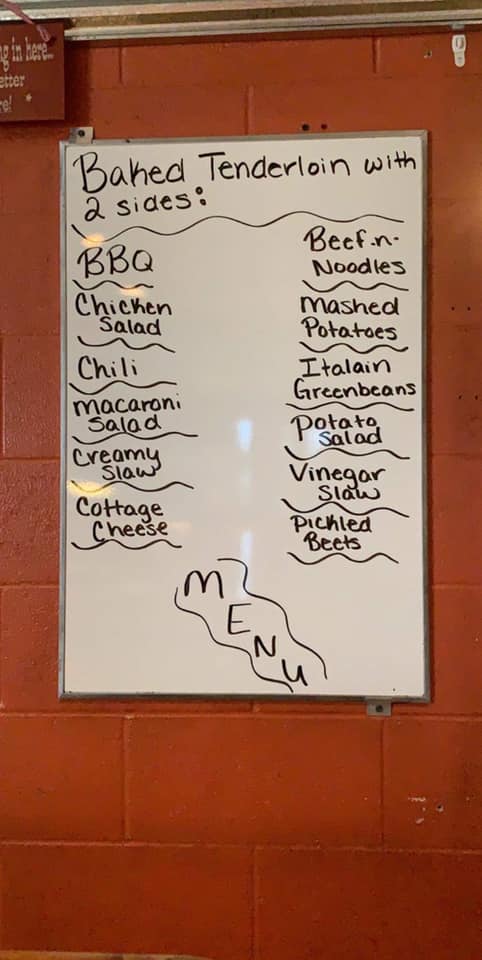 g in here...
etter
re!
Baked Tenderloin with
2 sides:
BBQ
Chicken
Salad
Chili
macaroni
Salad
Creamy
Slaw
Cottage
Cheese
Beef-n-
Noodles
Mashed
Potatoes
Italain
Greenbeans
Potato
Salad
Vinegar
Slaw
Pickled
Beets
MENU